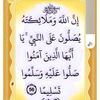 إِنَّ اللَّهَ وَمَلَائِكَتَهُ
يُصَلُّونَ عَلَى النَّبِيِّ ۚ يَا
أَيُّهَا الَّذِينَ آمَنُوا
صَلُّوا عَلَيْهِ وَسَلِّمُوا
تَسْلِيمًا